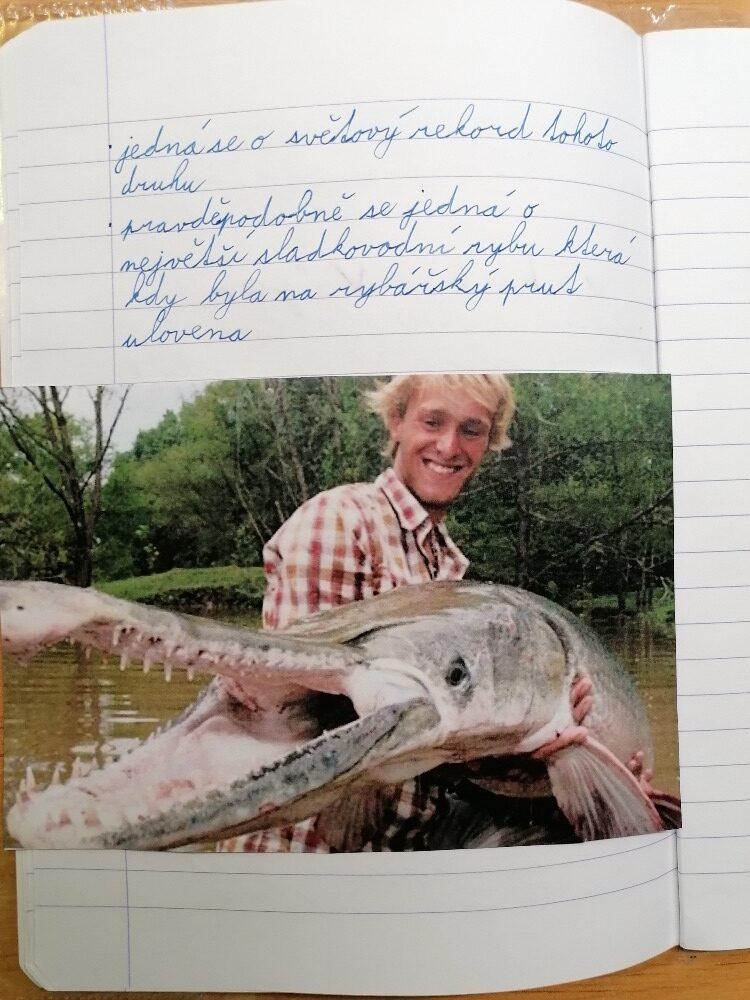 · jedná se o světový rekord tohoto
druhu
· pravděpodobně se jedná o
největší sladkovodní rybu která
kdy byla na rybářský prut
ulovena